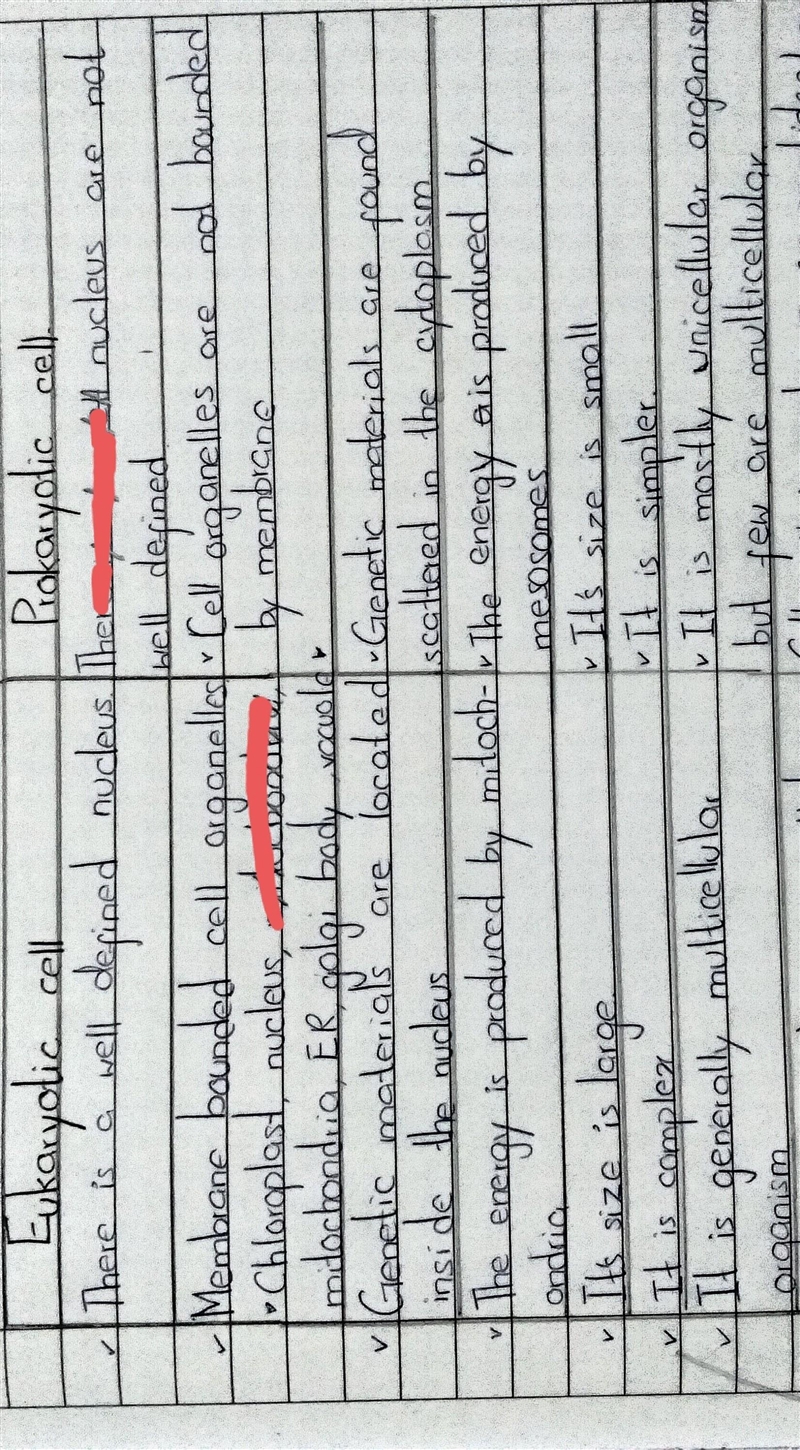 Eukaryotic cell
Prokaryotic cell.
✓ There is a well defined nucleus.
nucleus are not
well defined
✓ Membrane bounded cell organelles.
✓ Cell organelles are not bounded
by membrane
• Chloroplast, nucleus,
mitochondria, ER, golgi body, vacuole
✓ Genetic materials are located
inside the nucleus
✓ Genetic materials are found
scattered in the cytoplasm
✓ The energy is produced by mitoch-
ondria
✓ The energy is produced by
mesosomes
✓ It's size is large
✓ It's size is small
✓ It is complex
✓ It is simpler.
✓ It is generally multicellular
organism
✓ It is mostly unicellular organism
but few are multicellular.